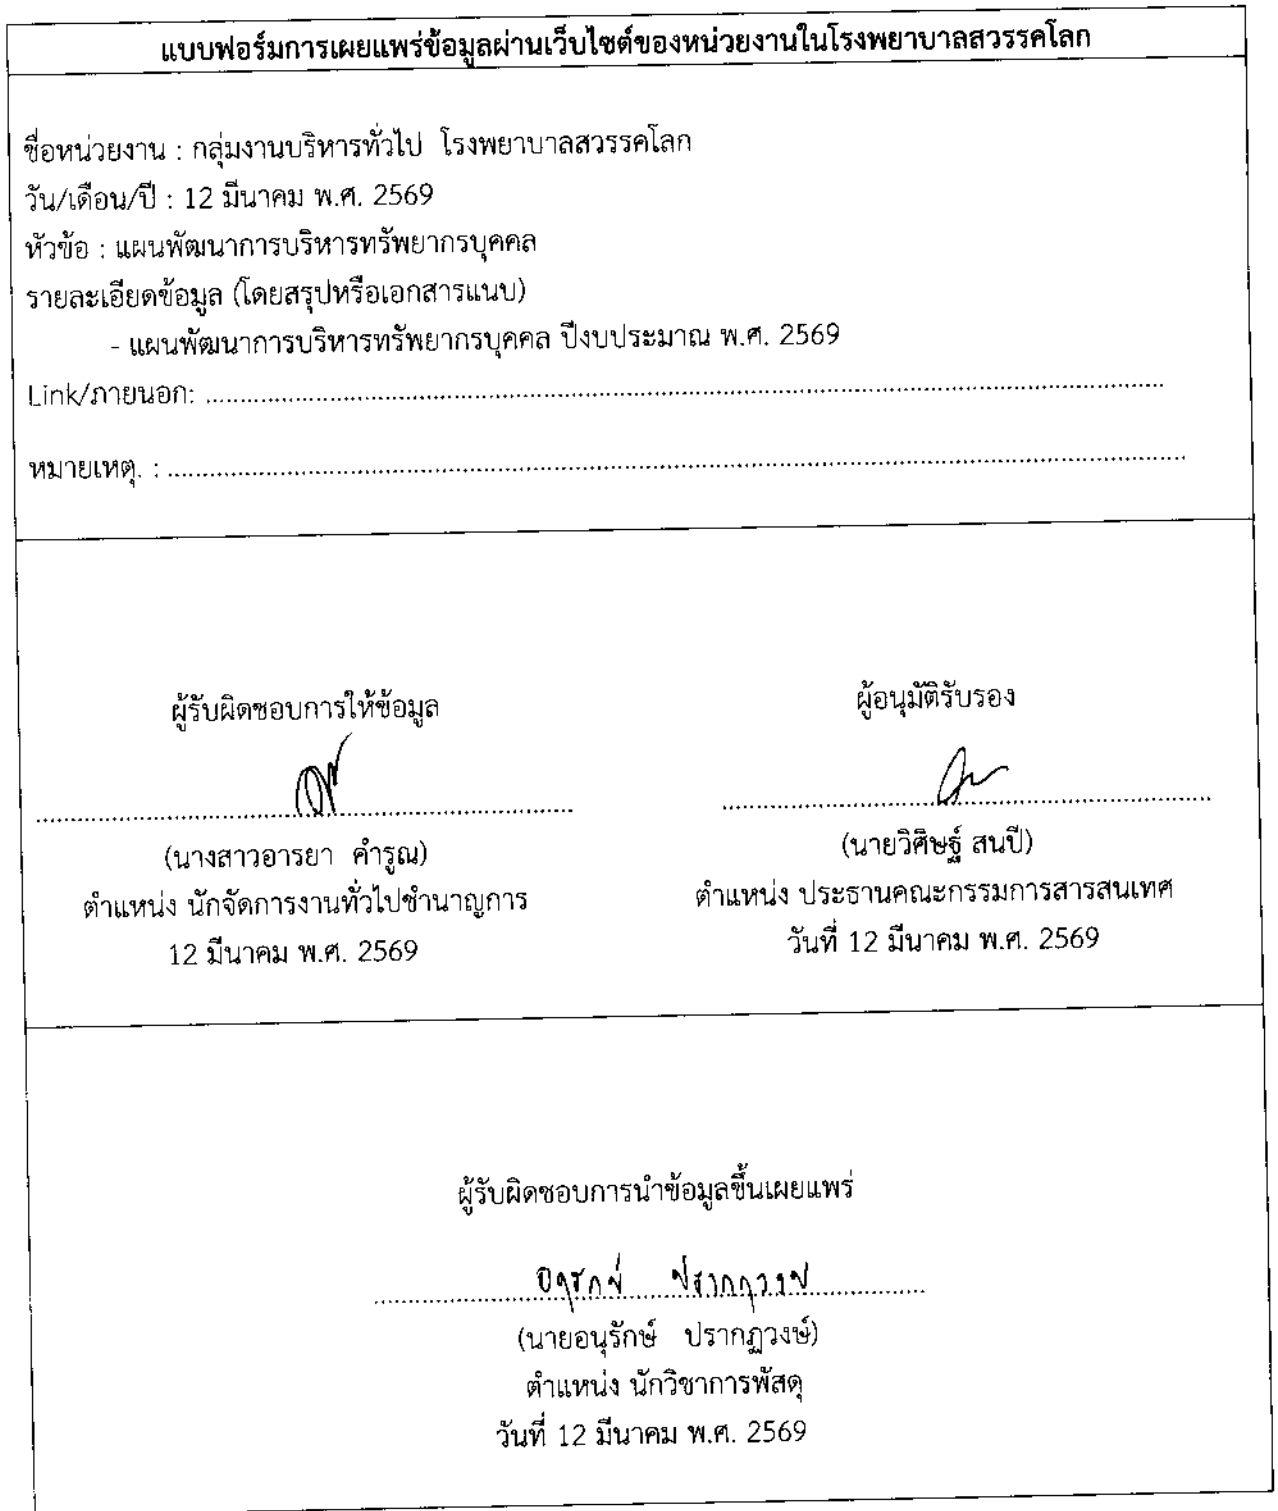 แบบฟอร์มการเผยแพร่ข้อมูลผ่านเว็บไซต์ของหน่วยงานในโรงพยาบาลสวรรคโลก
ชื่อหน่วยงาน : กลุ่มงานบริหารทั่วไป โรงพยาบาลสวรรคโลก
วัน/เดือน/ปี : 12 มีนาคม พ.ศ. 2569
หัวข้อ : แผนพัฒนาการบริหารทรัพยากรบุคคล
รายละเอียดข้อมูล (โดยสรุปหรือเอกสารแนบ)
- แผนพัฒนาการบริหารทรัพยากรบุคคล ปีงบประมาณ พ.ศ. 2569
Link/ภายนอก: ..........................................................................
หมายเหตุ. : ..........................................................................
ผู้รับผิดชอบการให้ข้อมูล
(นางสาวอารยา คำรูณ)
ตำแหน่ง นักจัดการงานทั่วไปชำนาญการ
12 มีนาคม พ.ศ. 2569
ผู้อนุมัติรับรอง
(นายวิศิษฐ์ สนปี)
ตำแหน่ง ประธานคณะกรรมการสารสนเทศ
วันที่ 12 มีนาคม พ.ศ. 2569
ผู้รับผิดชอบการนำข้อมูลขึ้นเผยแพร่
(นายอนุรักษ์ ปรากฏวงษ์)
ตำแหน่ง นักวิชาการพัสดุ
วันที่ 12 มีนาคม พ.ศ. 2569